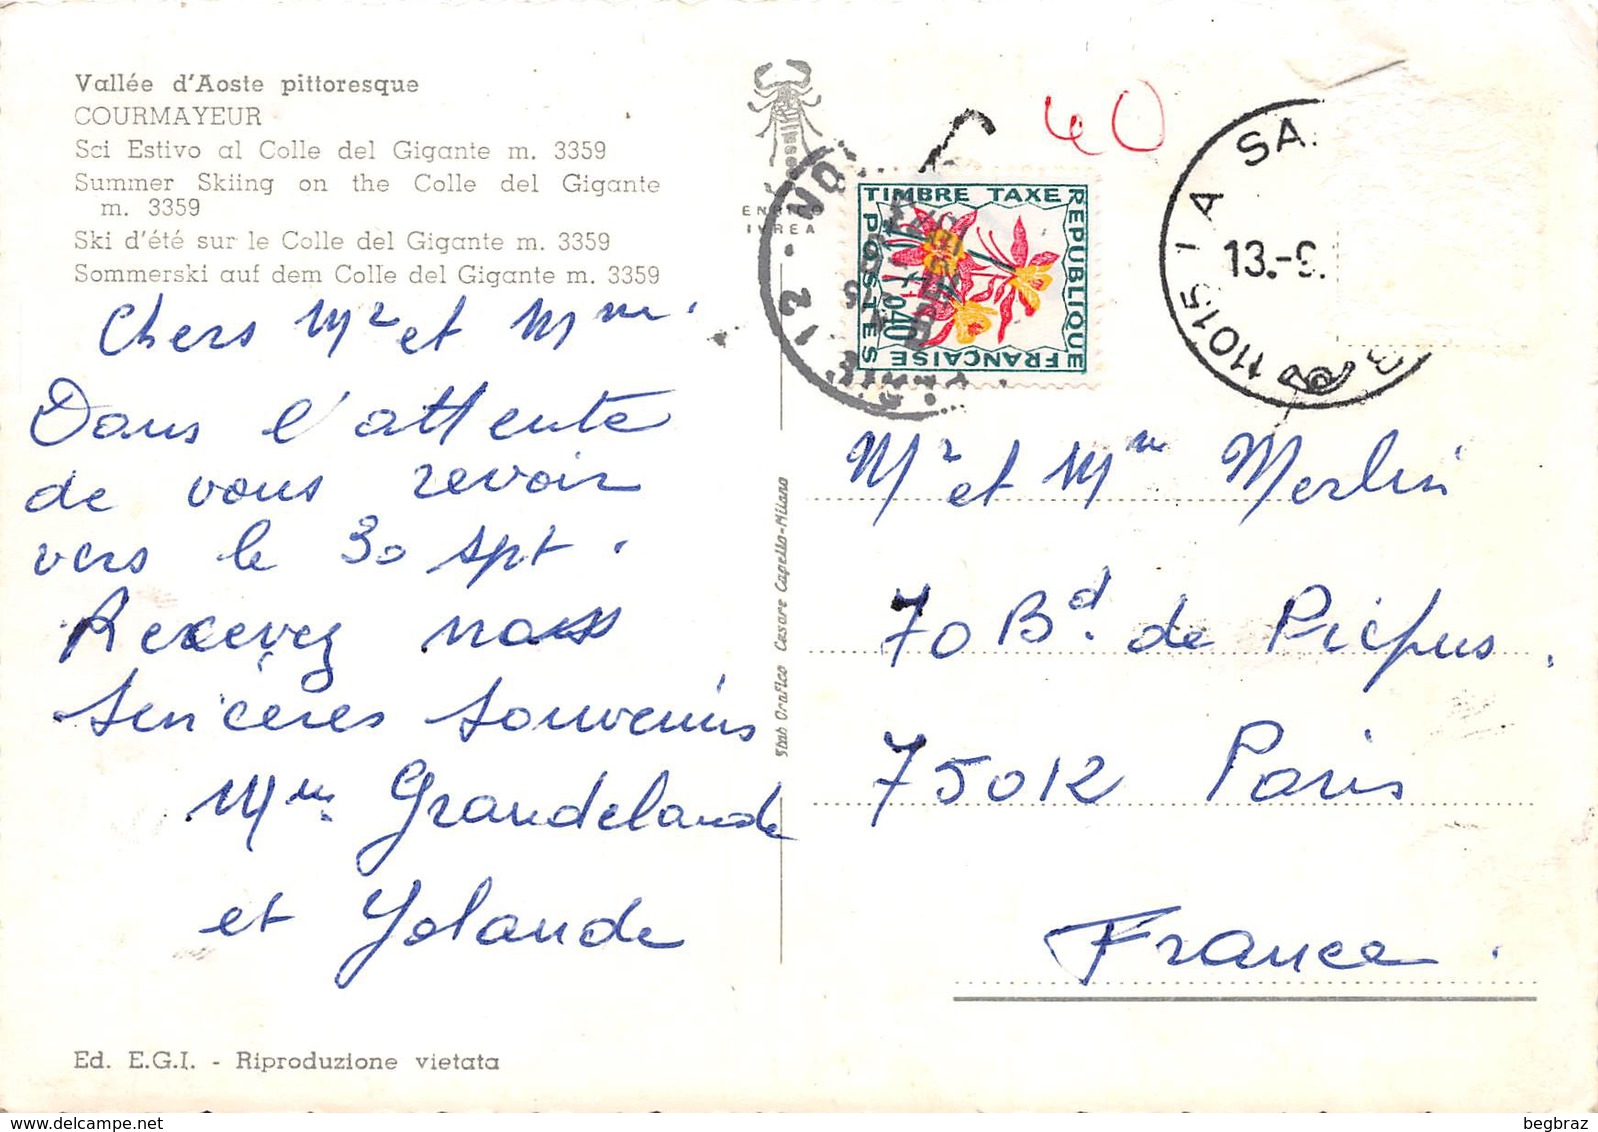 Vallée d'Aoste pittoresque
COURMAYEUR
Sci Estivo al Colle del Gigante m. 3359
Summer Skiing on the Colle del Gigante
m. 3359
Ski d'été sur le Colle del Gigante m. 3359
Sommerski auf dem Colle del Gigante m. 3359
Chers Mr et Mme.
Dans l'attente
de vous revoir
vers le 30 spt.
Recevez nos
sincères souvenirs
Mme Grandelaude
et Yolande
Ed. E.G.I. - Riproduzione vietata
ENRICO
IVREA
Stab Grafico Cesare Capello-Milano
40
TIMBRE TAXE
REPUBLIQUE
FRANÇAISE
POSTES
0,40
12
11015 IA SA
13.-9.
Mr et Mme Merlin
70 Bd. de Picpus.
75012 Paris
France.
begbraz